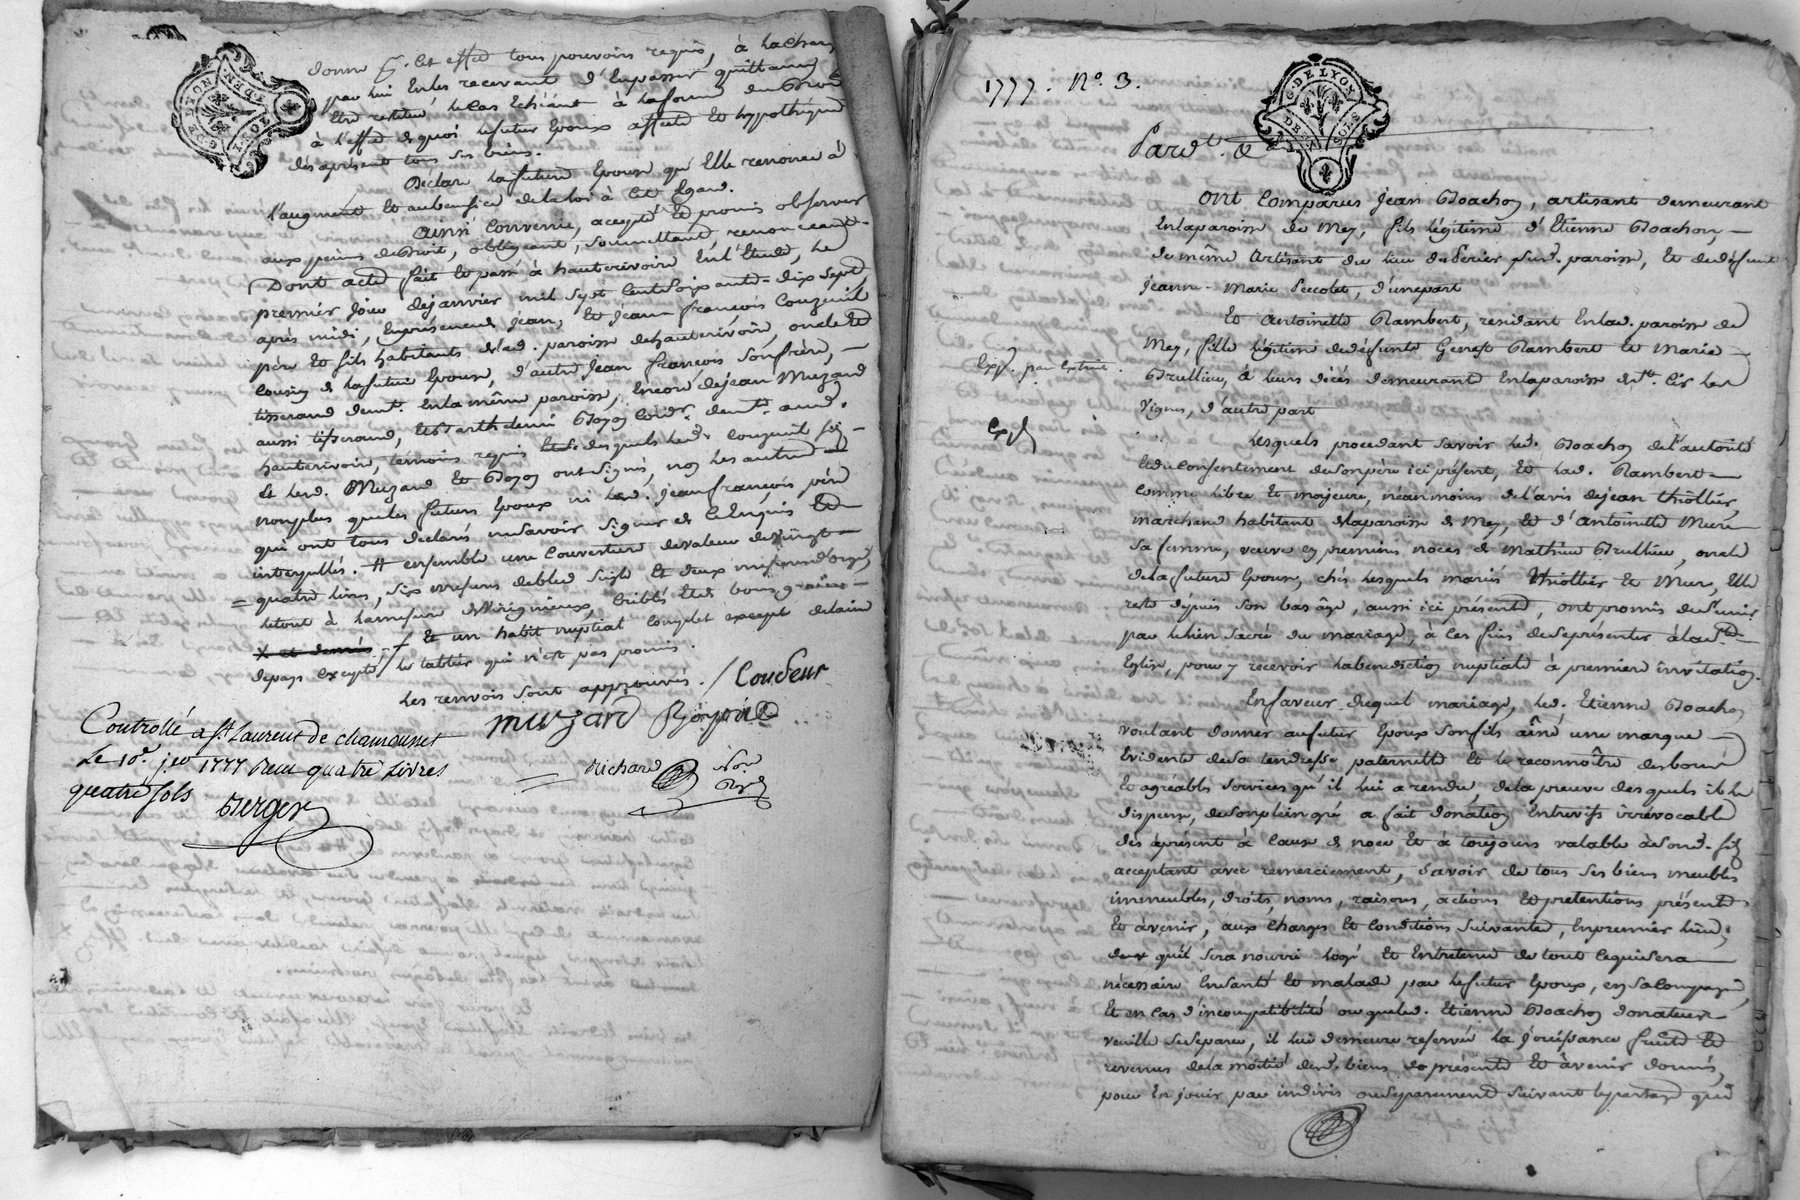 G. DE LYON
DE 2 SOLS
donne pr. Cet effet tous pouvoirs requis, à la charge
par lui En les recevant d'En passer quittances
Etre restitué le Cas Echéant à la forme du Droit
à l'effet de quoi le futur Epoux affecte Et hypothèque
dès àprésent tous ses biens.
Déclare la future Epouse qu'Elle renonce à
l'augment Et au benefice de la loi à Cet Egard.
Ainsi Convenu, accepté Et promis observer
aux peines de Droit, obligeant, soumettant, renonceant.
Dont acte fait Et passé à hauterivoire En l'Etude, Le
premier Jour de janvier mil sept Cent soixante-dix sept
après midi, En présence de Jean, Et Jean françois Couzeuil
père Et fils habitants de lad. paroisse de hauterivoire, oncle Et
Cousin de la future Epouse, d'autre Jean françois Sonfrère,
tisserand demt. En la même paroisse, Encore de jean Muzard
aussi tisserand, Et Barthelemi Boyoy Cordr. demt. aud.
hauterivoire, temoins requis desquels led. Couzeuil fils
Et led. Muzard Et Boyoy ont signés, noy les autres
nonplus que les futurs Epoux ni led. Jean françois père
qui ont tous déclarés ne savoir signer de Ce Enquis Et
interpellés. # ensemble une Couverture de valeur de vingt
= quatre livres, six mesures de bled seigle Et deux mesures d'orge
le tout à la mesure de Virigneux, Criblés Et de bons grains
X et demis. + Et un habit nuptial Complet except de laine
de pays excepté le tablier qui n'est pas promis.
Les renvois sont approuvés. / Couzeur
muzard Boyoy
Richard Nore
Roy.
Controllé a St Laurent de chamousset
Le 10e. jer 1777 Reçu quatre Livres
quatre sols
Berger
1777. No. 3.
G. DE LYON
DE 2 SOLS
Pardt. &
Ont Comparus Jean Boachoy, artisant demeurant
En la paroisse de Mey, fils légitime d'Etienne Boachon,
de même Artisant du lieu du Perier susd. paroisse, Et de defunte
Jeanne-Marie Peccolet, d'une part
Et Antoinette Rambert, residant En lad. paroisse de
Mey, fille légitime de défunts Genest Rambert Et Marie
Expé. par Extrait.
Brullieu, à leurs décès demeurant En la paroisse de Ste. Cir les
Vignes, d'autre part
Exp.
Lesquels procedant savoir led. Boachoy de l'autorité
Et du Consentement de son père ici présent, Et lad. Rambert
Comme libre Et majeure, néanmoins de l'avis de jean thiollier,
marchand habitant de la paroisse de Mey, Et d'Antoinette Mure
sa femme, veuve en premieres noces de Mathieu Brullieu, oncle
de la future Epouse, chés lesquels mariés thiollier Et Mure, Elle
reste depuis son bas âge, aussi ici présents, ont promis de s'unir
par le lien sacré du mariage, à Ces fins de se présenter à la Ste
Eglise, pour y recevoir la benediction nuptiale à premiere invitatioy.
En faveur duquel mariage, led. Etienne Boachoy
voulant donner au futur Epoux son fils aîné une marque
Evidente de sa tendresse paternelle Et le reconnoître des bons
Et agréables services qu'il lui a rendu, de la preuve desquels il le
dispense, de son plein gré a fait donatioy Entrevifs irrévocable
dès àprésent à Cause de noce Et à toujours valable à sond. fils
acceptant avec remerciement, Savoir de tous ses biens meubles
immeubles, droits, noms, raisons, actions Et pretentions présents
Et àvenir, aux Charges Et Conditions suivantes, En premier lieu,
qu'il sera nourri logé Et Entretenu de tout Ce qui sera
nécessaire En santé Et malade par le futur Epoux, en sa Compagnie,
Et en Cas d'incompatibilité ou que led. Etienne Boachoy donateur
veuille se séparer, il lui demeure reservée la jouissance fruits Et
revenus de la moitié desd. biens présents Et àvenir donnés,
pour En jouir par indivis ou séparement suivant le partage qui